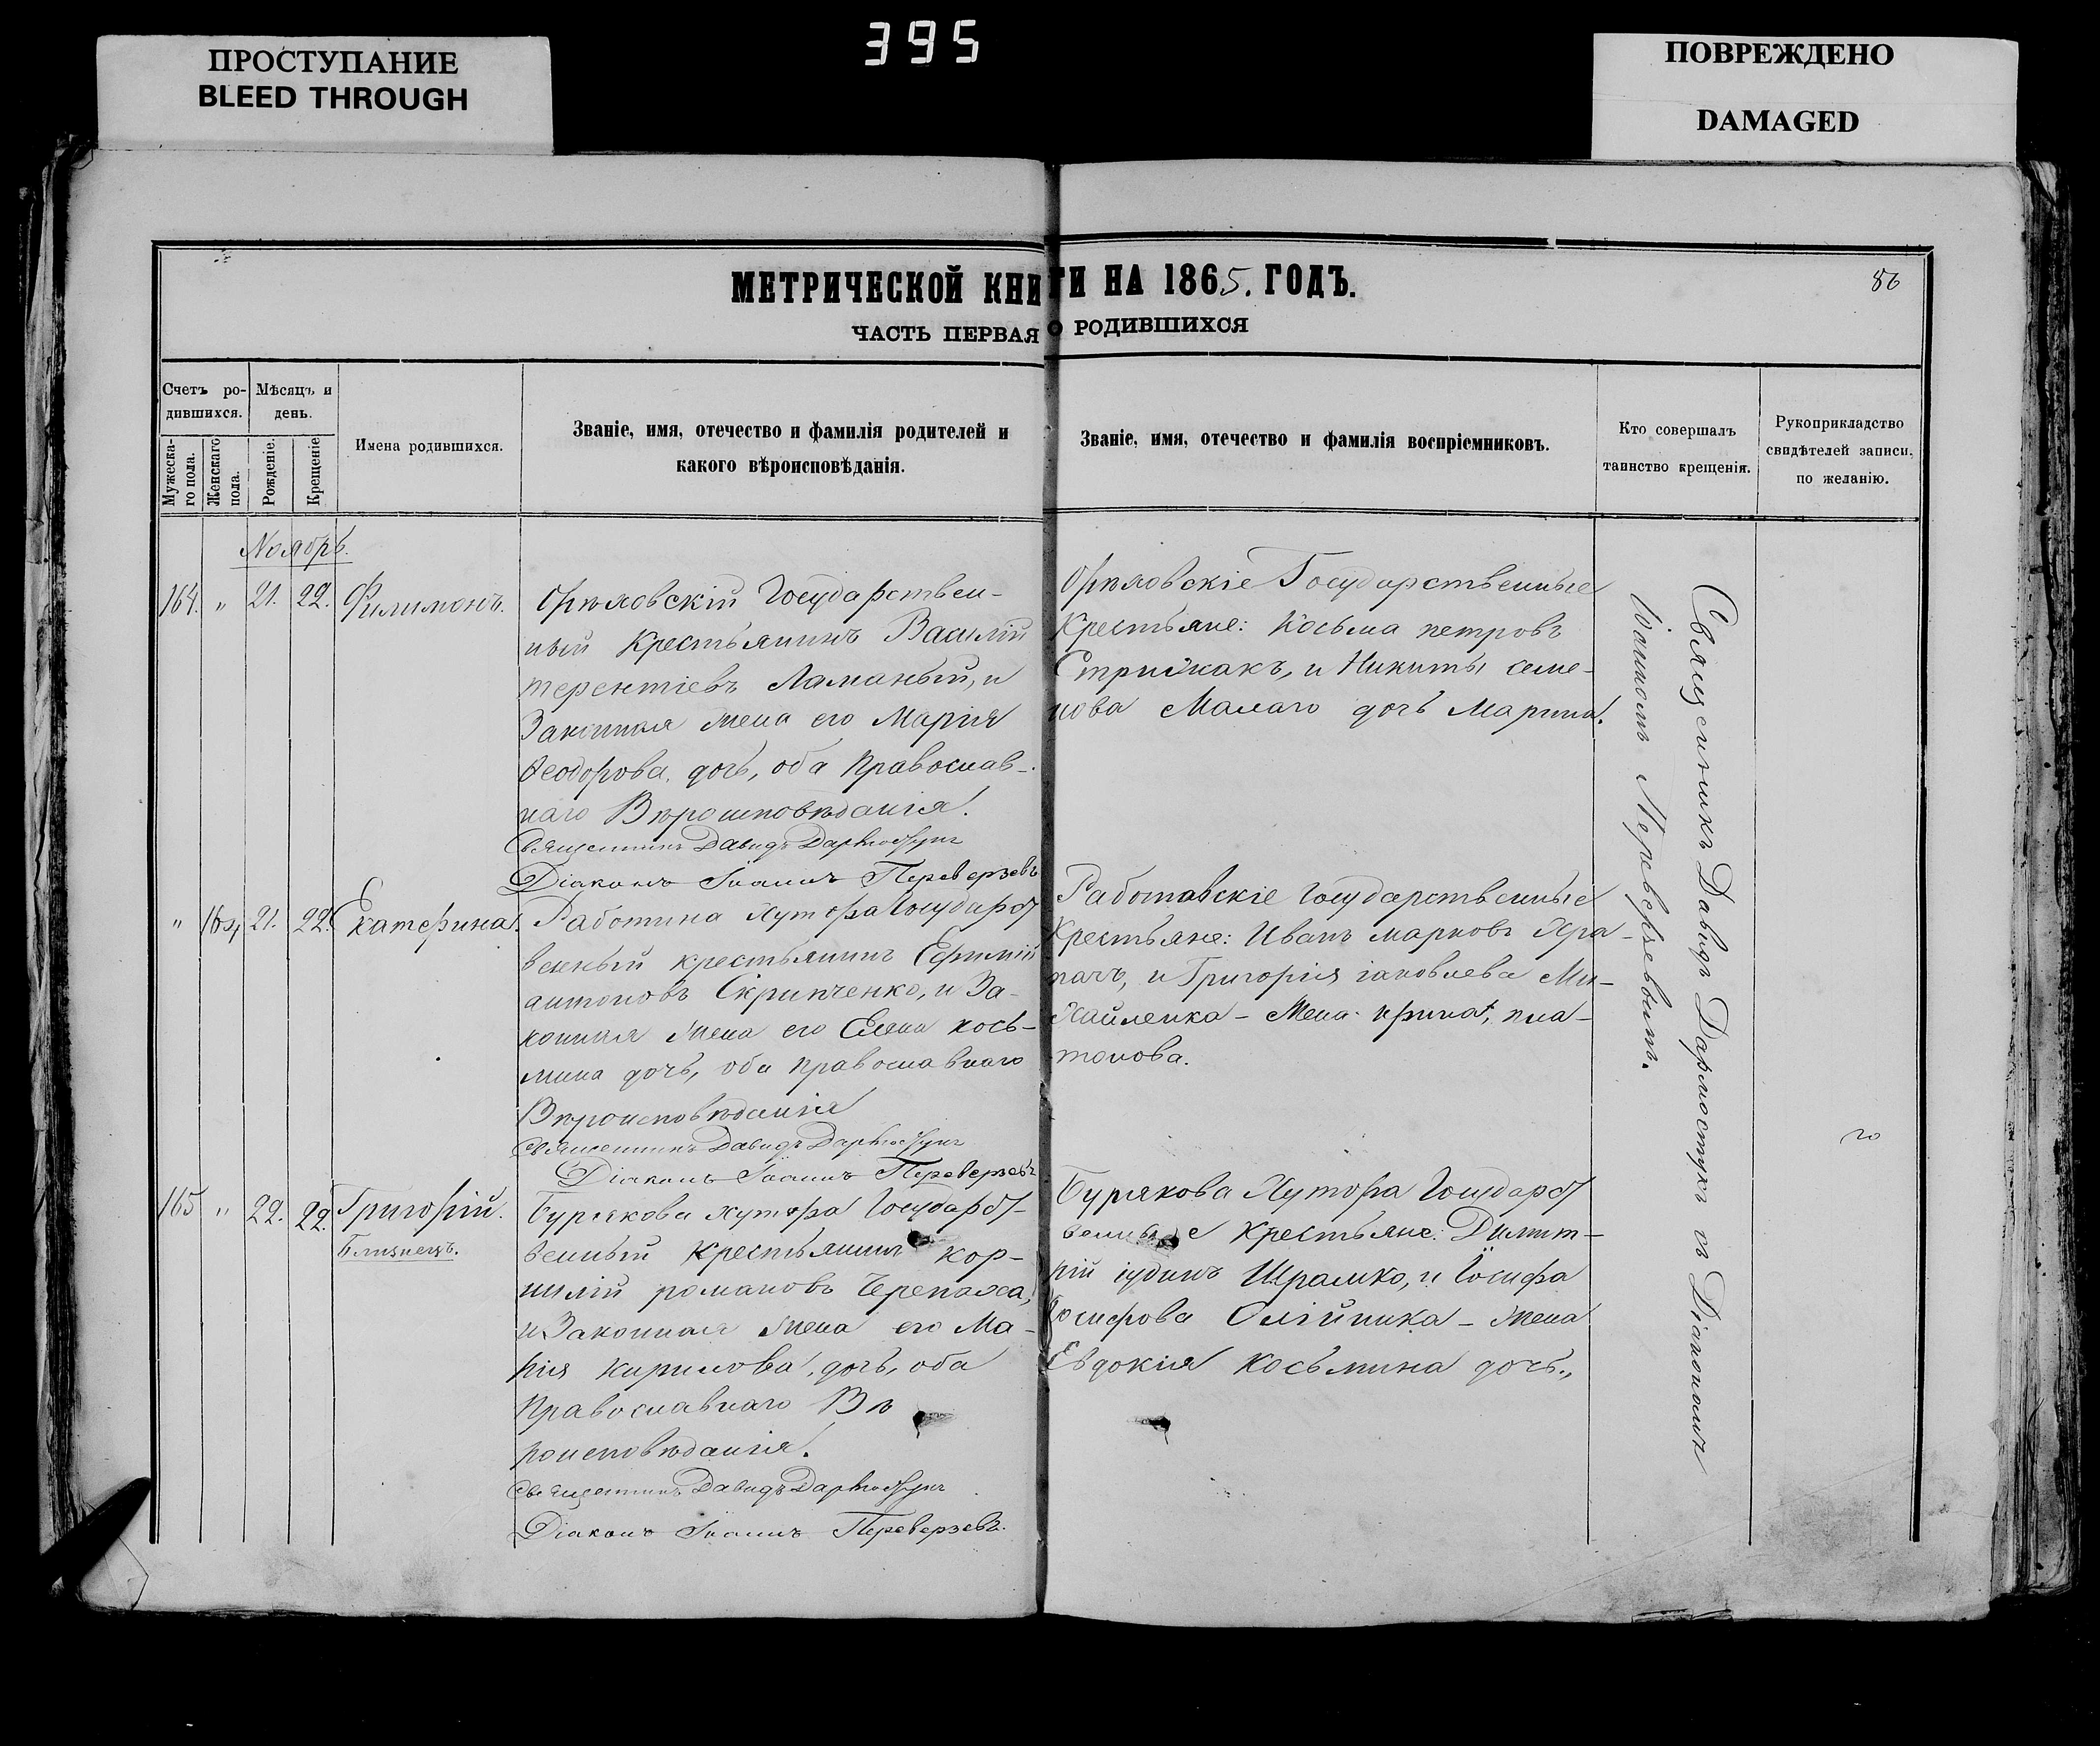 395
ПРОСТУПАНИЕ
BLEED THROUGH
ПОВРЕЖДЕНО
DAMAGED
МЕТРИЧЕСКОЙ КНИГИ НА 1865. ГОДЪ.
86
ЧАСТЬ ПЕРВАЯ О РОДИВШИХСЯ
Счетъ ро-
дившихся.
Мѣсяцъ и
день.
Мужеска-
го пола.
Женскаго
пола.
Рожденіе.
Крещеніе
Имена родившихся.
Званіе, имя, отечество и фамилія родителей и
какого вѣроисповѣданія.
Званіе, имя, отечество и фамилія воспріемниковъ.
Кто совершалъ
таинство крещенія.
Рукоприкладство
свидѣтелей записи,
по желанію.
Ноябрь.
164. " 21. 22. Филимонъ.
Орѣховскій Государствен-
ный Крестьянинъ Василій
терентіевъ Ламаный, и
Законная жена его Марія
Ѳеодорова, дочь, оба Православ-
наго Вѣроисповѣданія.
Священникъ Давидъ Дармостукъ
Діаконъ Іоаннъ Переверзевъ
Орѣховскіе Государственные
Крестьяне: Косьма петровъ
Стрижакъ, и Никиты семе-
нова Малаго дочь Марина.
" 164 21. 22. Екатерина.
Работина Хутора Государст
венный крестьянинъ Ефимій
антоновъ Скрипченко, и За-
конная жена его Елена кось-
мина дочь, оба православнаго
Вѣроисповѣданія
Священникъ Давидъ Дармостукъ
Діаконъ Іоаннъ Переверзевъ
Работавскіе Государственные
Крестьяне: Иванъ марковъ Хра-
пачъ, и Григорія іаковлева Ми-
хайленка - жена ирина, пла-
тонова.
165 " 22. 22. Григорій.
Близнецъ.
Бурякова хутора Государст-
венный Крестьянинъ кор-
нилій романовъ Черепаха,
и Законная жена его Ма-
рія кирилова, дочь, оба
Православнаго Вѣ
роисповѣданія.
Священникъ Давидъ Дармостукъ
Діаконъ Іоаннъ Переверзевъ.
Бурякова Хутора Государст
венные Крестьяне: Димит-
рій іудинъ Шрамко, и Іосифа
Іосифова Олійника - жена
Евдокія Косьмина дочь.,
Священникъ Давидъ Дармостукъ съ Діакономъ
Іоанномъ Переверзевымъ.